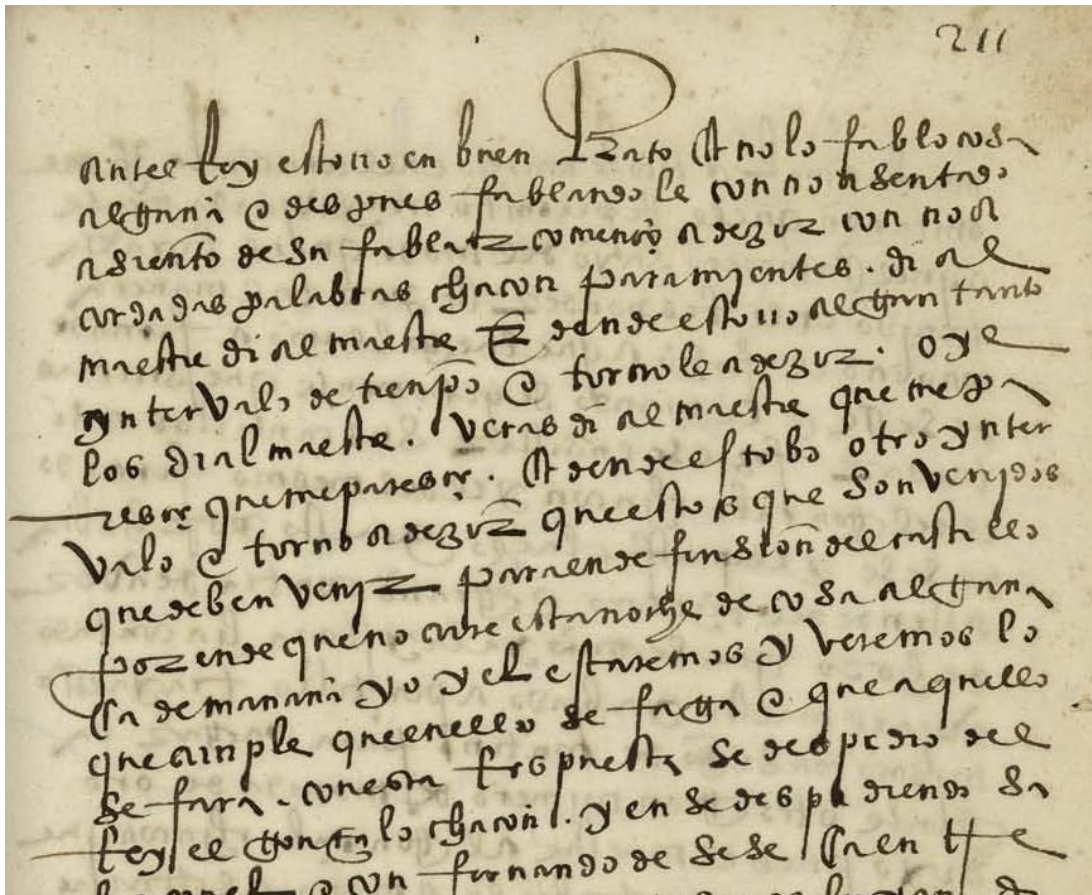 211
antel Rey estouo en buen Rato q̃ no lo fablo cosa
alguna e despues fablandole con no asentado
asiento de su fablar començo a dezir con no a
cordadas palabras chacon paramientes. di al
maestre di al maestre E dende estouo algun tanto
yntervalo de tienpo e tornole a dezir. oye
los di al maestre. veras di al maestre que me pa
resçe que me paresçe. A dende estobo otro ynter
valo e torno a dezir que estos que son venidos
que deben venir para ende funsion del castillo
por ende que no cure esta noche de cosa alguna
ca de mañana yo y el estaremos y veremos lo
que cunple que en ello se fagga e que aquello
se fara. con esta Respuesta se despidio del
Rey el gonçalo chacon. y en se despidiendo sa
e con fernando de sese ca en